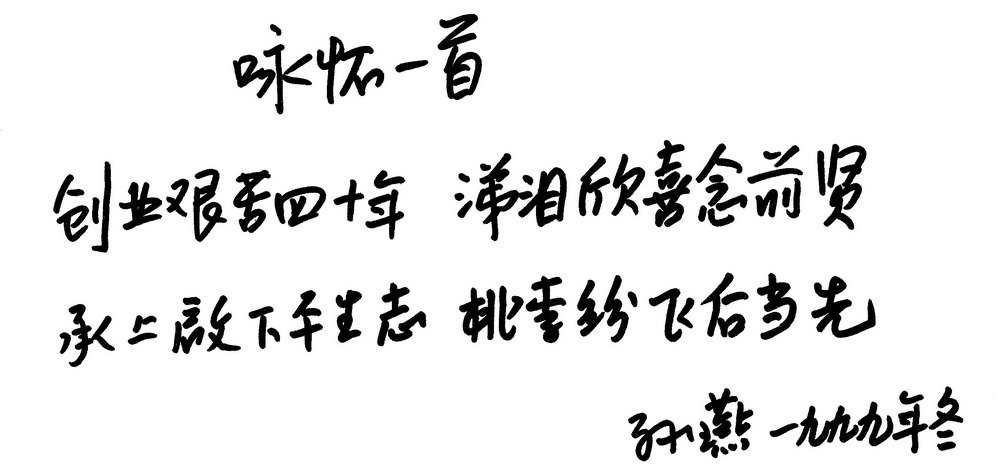 咏怀一首
创业艰苦四十年 涕泪欣喜念前贤
承上啟下平生志 桃李纷飞后当先
孙燕 一九九九年冬